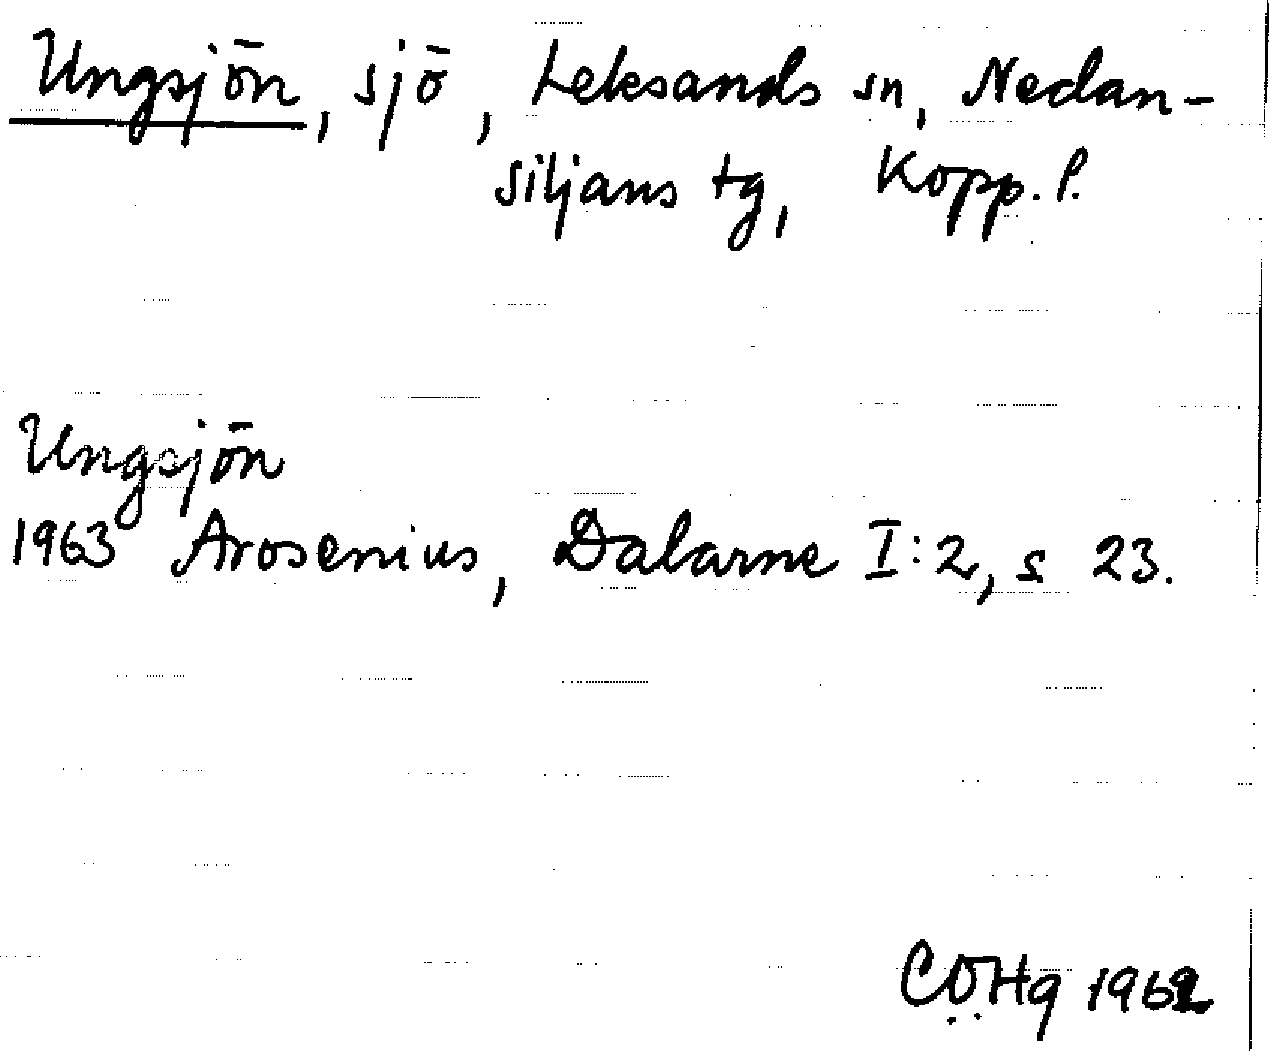 Ungsjön, sjö, Leksands sn, Nedan-
siljans tg, Kopp. l.
Ungsjön
1963 Arosenius, Dalarne I:2, s 23.
COHg 1962